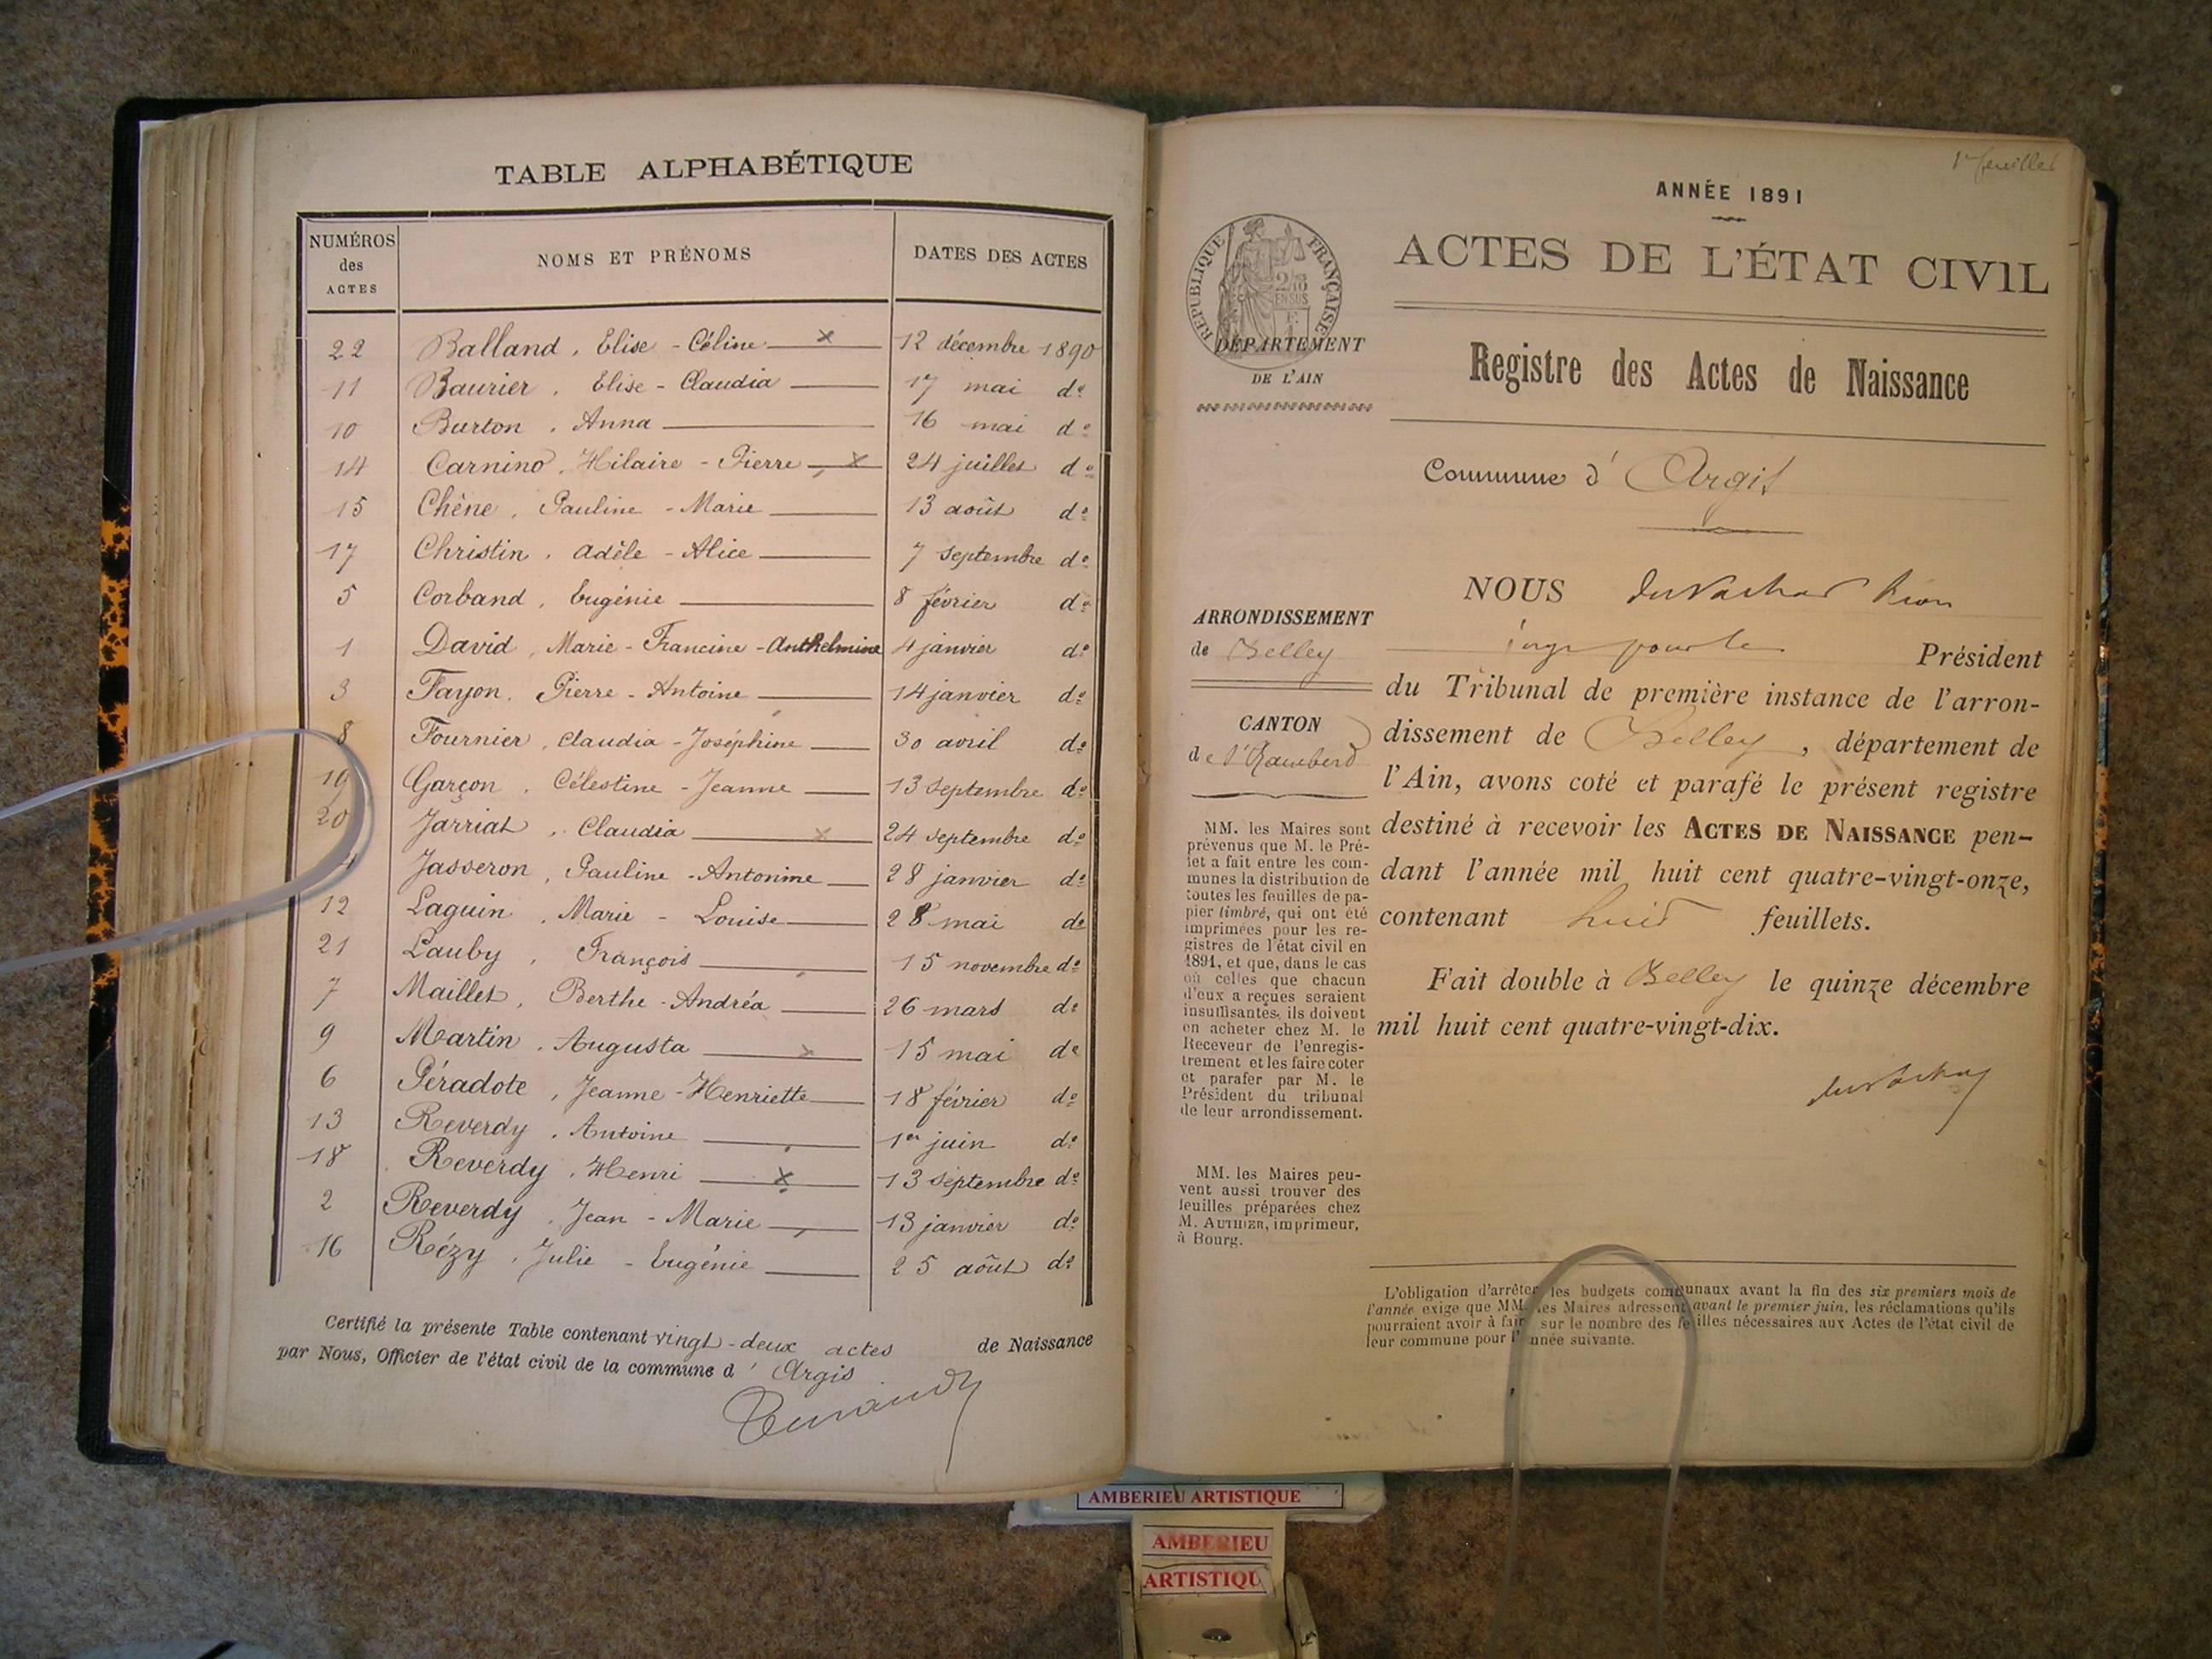 TABLE ALPHABÉTIQUE
NUMÉROS des ACTES NOMS ET PRÉNOMS DATES DES ACTES
22 Balland, Elise - Céline x 12 décembre 1890
11 Baurier, Elise - Claudia 17 mai do
10 Burton, Anna 16 mai do
14 Carnino, Hilaire - Pierre x 24 juillet do
15 Chêne, Pauline - Marie 13 août do
17 Christin, Adèle - Alice 7 septembre do
5 Corband, Eugénie 8 février do
1 David, Marie - Francine - Anthelmine 4 janvier do
3 Fayon, Pierre - Antoine 14 janvier do
8 Fournier, Claudia - Joséphine 30 avril do
19 Garçon, Célestine - Jeanne 13 septembre do
20 Jarriat, Claudia x 24 septembre do
4 Jasseron, Pauline - Antonine 28 janvier do
12 Laguin, Marie - Louise 28 mai do
21 Lauby, François 15 novembre do
7 Maillet, Berthe - Andréa 26 mars do
9 Martin, Augusta x 15 mai do
6 Péradote, Jeanne - Henriette 18 février do
13 Reverdy, Antoine 1er juin do
18 Reverdy, Henri x 13 septembre do
2 Reverdy, Jean - Marie 13 janvier do
16 Rézy, Julie - Eugénie 25 août do
Certifié la présente Table contenant vingt-deux actes de Naissance
par Nous, Officier de l'état civil de la commune d'Argis
1er feuillet
ANNÉE 1891
RÉPUBLIQUE FRANÇAISE
ACTES DE L'ÉTAT CIVIL
DÉPARTEMENT
DE L'AIN
Registre des Actes de Naissance
Commune d'Argis
ARRONDISSEMENT
de Belley
CANTON
de St Rambert
MM. les Maires sont
prévenus que M. le Pré-
fet a fait entre les com-
munes la distribution de
toutes les feuilles de pa-
pier timbré, qui ont été
imprimées pour les re-
gistres de l'état civil en
1891, et que, dans le cas
où celles que chacun
d'eux a reçues seraient
insuffisantes, ils doivent
en acheter chez M. le
Receveur de l'enregis-
trement et les faire coter
et parafer par M. le
Président du tribunal
de leur arrondissement.
MM. les Maires peu-
vent aussi trouver des
feuilles préparées chez
M. AUTHIER, imprimeur,
à Bourg.
NOUS
juge pour le Président
du Tribunal de première instance de l'arron-
dissement de Belley, département de
l'Ain, avons coté et parafé le présent registre
destiné à recevoir les ACTES DE NAISSANCE pen-
dant l'année mil huit cent quatre-vingt-onze,
contenant huit feuillets.
Fait double à Belley le quinze décembre
mil huit cent quatre-vingt-dix.
L'obligation d'arrêter les budgets communaux avant la fin des six premiers mois de
l'année exige que MM. les Maires adressent avant le premier juin, les réclamations qu'ils
pourraient avoir à faire sur le nombre des feuilles nécessaires aux Actes de l'état civil de
leur commune pour l'année suivante.
AMBERIEU ARTISTIQUE
AMBERIEU
ARTISTIQU